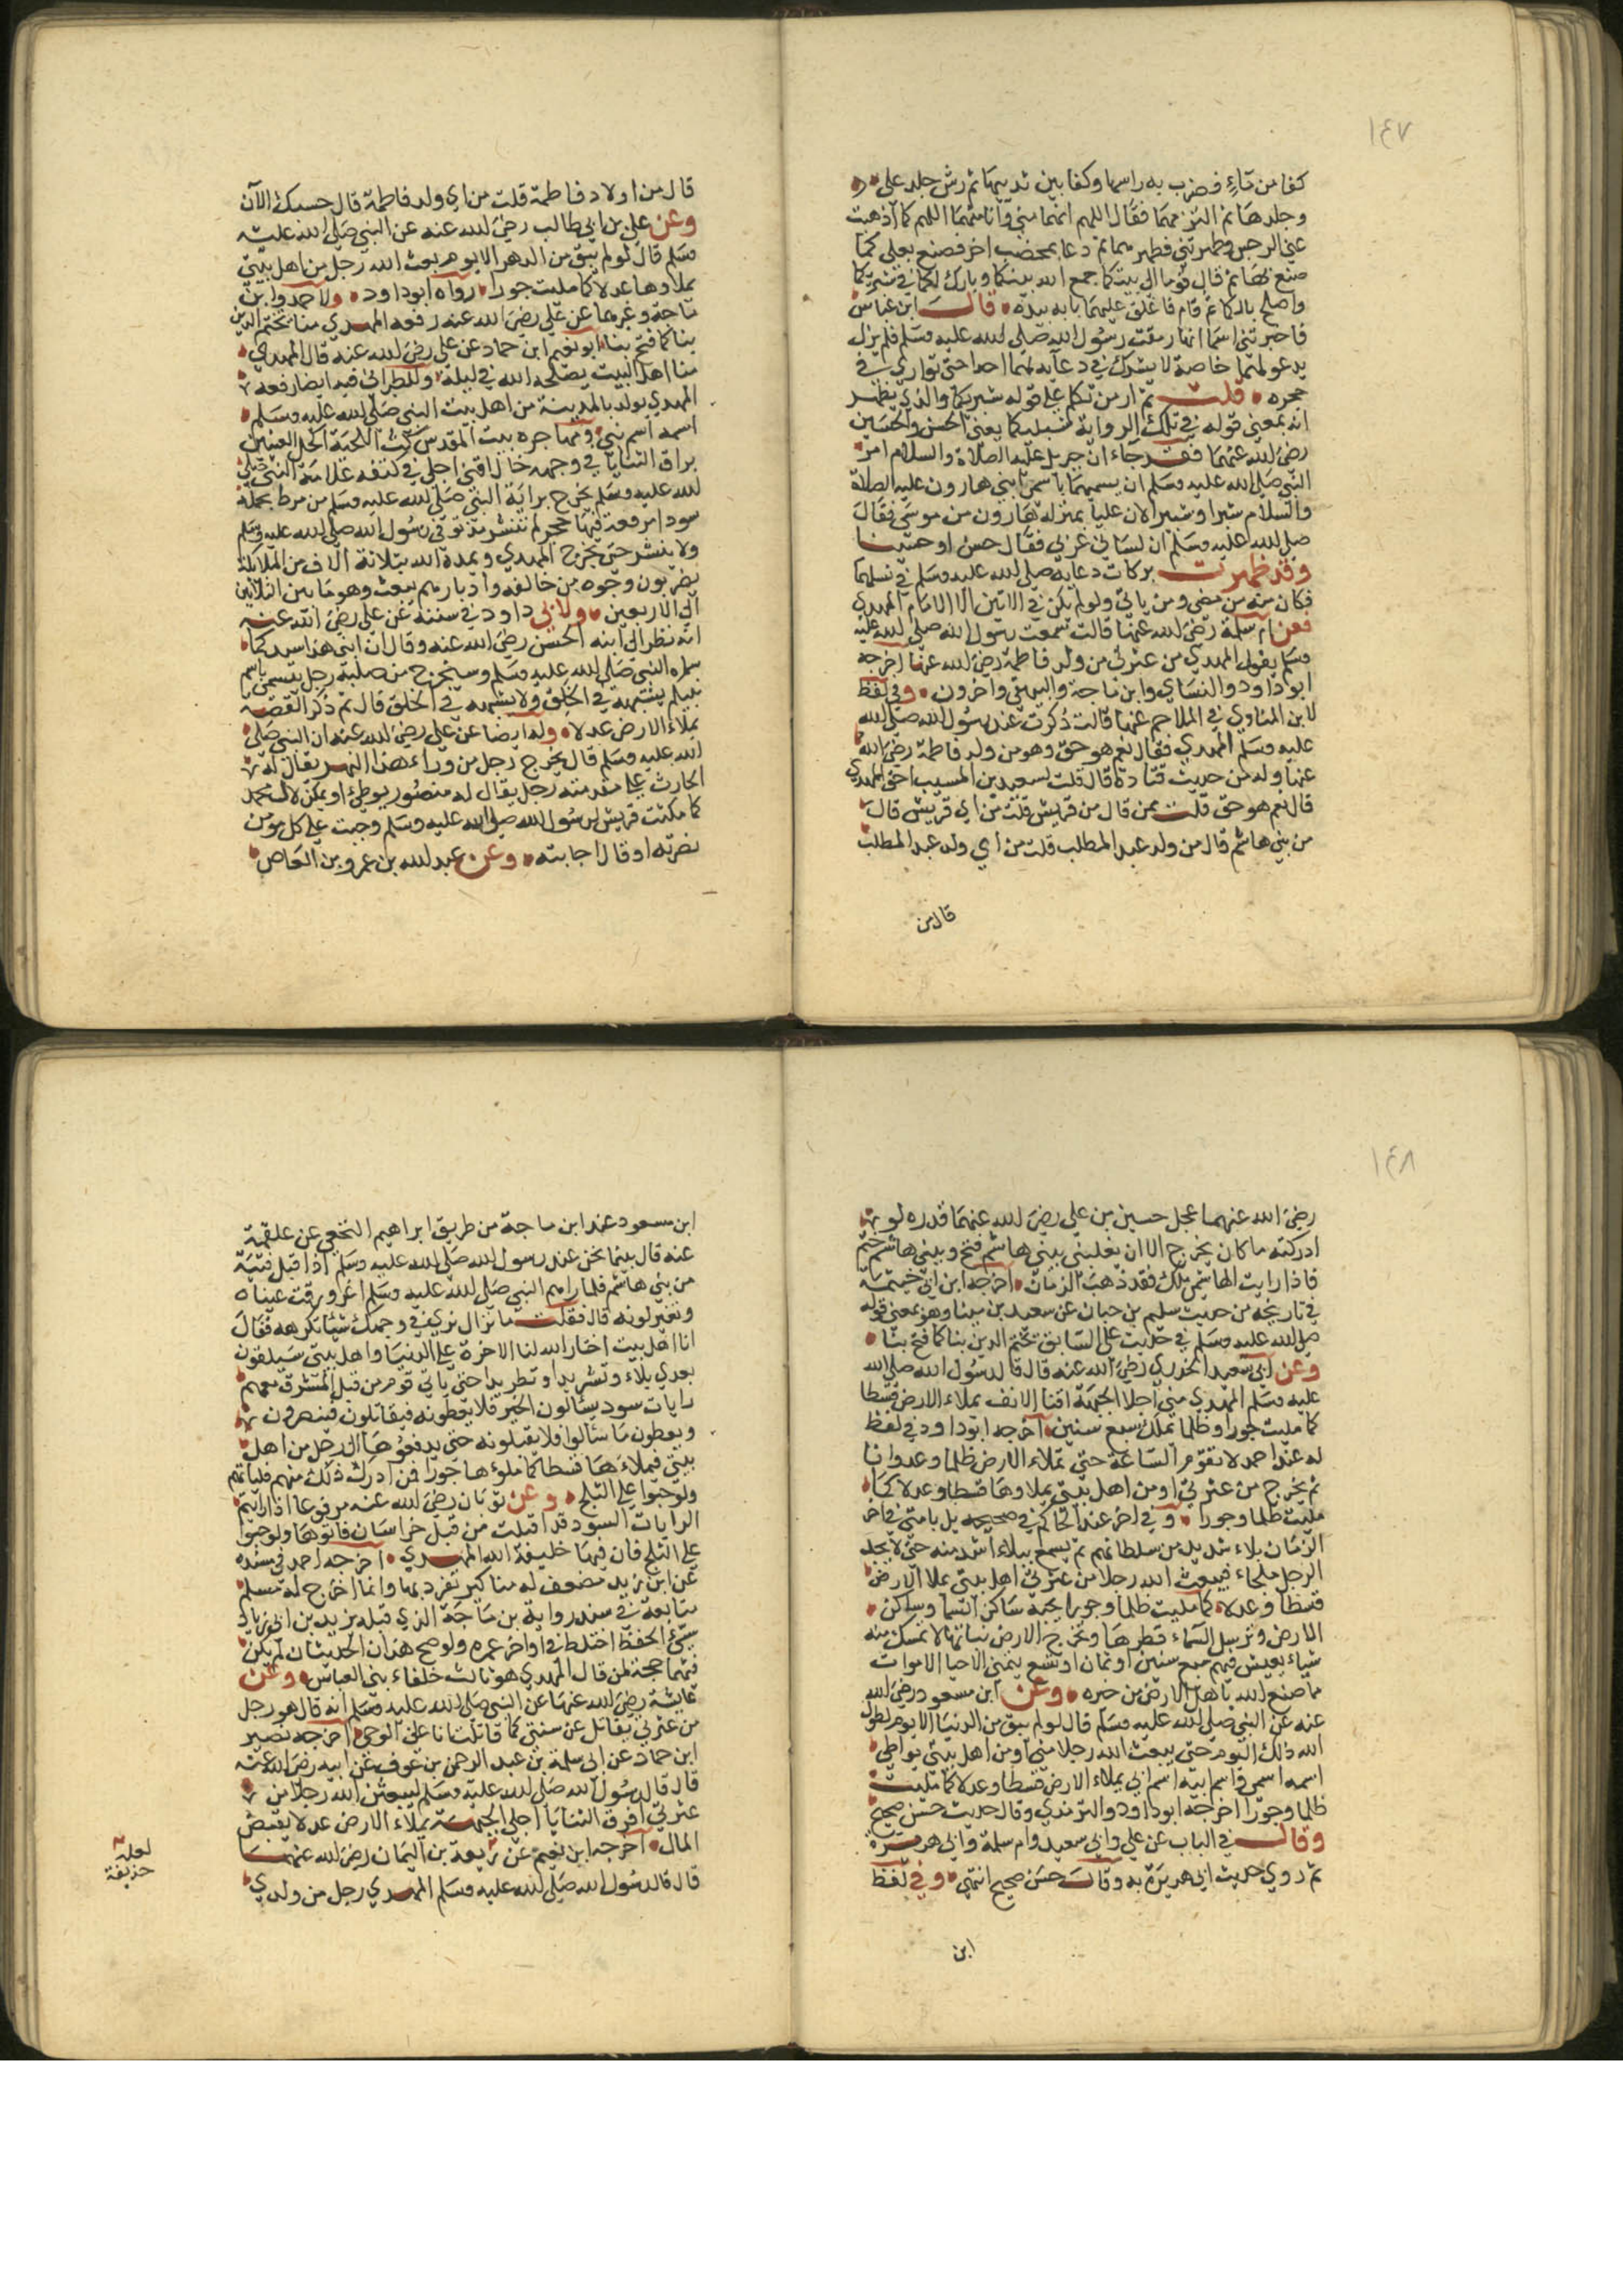 ١٤٧
كفا من ماء فضرب به راسها وكفا بين ثدييها ثم رش جلد على
وجلدها ثم التزمهما فقال اللهم انهما مني وانا منهما اللهم كما اذهبت
عني الرجس وطهرتني فطهرهما ثم دعا بمخضب اخر فصنع بعلي كما
صنع بها ثم قال قوما الى بيتكما جمع الله بينكما وبارك لكما في
واصلح بالكما ثم قام فاغلق عليهما بابه بيده قالت ابن عباس
فاخبرتني اسما انها رمقت رسول الله صلى الله عليه وسلم فلم يزل
يدعو لهما خاصة لا يشرك في دعايه لهما احدا حتى توارى في
حجره قلت ثم ار من تكلم على قوله شبريكما والذي يظهر
انه بمعنى قوله في تلك الرواية شبليكما يعني الحسن والحسين
رضي الله عنهما فقد جاء ان جبريل عليه الصلاة والسلام امر
النبي صلى الله عليه وسلم ان يسميهما باسمي ابني هارون عليه الصلاة
والسلام شبرا وشبيرا لان عليا بمنزلة هارون من موسى فقال
صلى الله عليه وسلم ان لساني عربي فقال حسن او حسينا
وقد ظهرت بركات دعايه صلى الله عليه وسلم في نسلهما
فكان منه من مضى ومن ياتي ولو لم يكن في الاتين الا الامام المهدي
فعن ام سلمة رضي الله عنها قالت سمعت رسول الله صلى الله عليه
وسلم يقول المهدي من عترتي من ولد فاطمة رضي الله عنها اخرجه
ابو داود والنساي وابن ماجة والبيهقي واخرون وفي لفظ
لابن المناوي في الملاحم عنها قالت ذكرت عند رسول الله صلى الله
عليه وسلم المهدي فقال نعم هو حق وهو من ولد فاطمة رضي الله
عنها وله من حديث قتادة قال قلت لسعيد بن المسيب احق المهدي
قال نعم هو حق قلت ممن قال من قريش قلت من اي قريش قال
من بني هاشم قال من ولد عبد المطلب قلت من اي ولد عبد المطلب
قال من
قال من اولاد فاطمة قلت من اي ولد فاطمة قال حسبك الآن
وعن علي بن ابي طالب رضي الله عنه عن النبي صلى الله عليه
وسلم قال لو لم يبق من الدهر الا يوم بعث الله رجل من اهل بيتي
يملاوها عدلا كما مليت جورا رواه ابو داود ولاحمد وابن
ماجة وغيرهما عن علي رضي الله عنه رفعه المهدي منا يختم الدين
بنا كما فتح بنا ابو نعيم ابن حماد عن علي رضي الله عنه قال المهدي
منا اهل البيت يصلحه الله في ليلة وللطبراني فيه ايضا رفعه
المهدي يولد بالمدينة من اهل بيت النبي صلى الله عليه وسلم
اسمه اسم نبي ومهاجره بيت المقدس كث اللحية اكحل العينين
براق الثنايا في وجهه خال اقنى اجلى في كتفه علامة النبي صلى
الله عليه وسلم يخرج براية النبي صلى الله عليه وسلم من مرط مخملة
سودا مرفعة فيها حجر لم تنشر مذ توفي رسول الله صلى الله عليه وسلم
ولا ينشر حتى يخرج المهدي ويمده الله بثلاثة الاف من الملائكة
يضربون وجوه من خالفه وادبارهم يبعث وهو ما بين الثلاثين
الى الاربعين ولابي داود في سننه عن علي رضي الله عنه
انه نظر الى ابنه الحسن رضي الله عنه وقال ان ابني هذا سيد كما
سماه النبي صلى الله عليه وسلم وسيخرج من صلبه رجل يتسمى باسم
نبيكم يشبهه في الخلق ولا يشبهه في الخلق قال ثم ذكر القصة
يملاء الارض عدلا وله ايضا عن علي رضي الله عنه ان النبي صلى
الله عليه وسلم قال يخرج رجل من وراء هذا النهر يقال له
الحارث على مقدمته رجل يقال له منصور يوطئ او يمكن لال محمد
كما مكنت قريش لرسول الله صلى الله عليه وسلم وجبت على كل مومن
نصرته او قال اجابته وعن عبد الله بن عمرو بن العاص
١٤٨
رضي الله عنهما عجل حسين بن علي رضي الله عنهما قدره لو
ادركته ما كان يخرج الا ان يغلبني ببني هاشم فتح وببني هاشم ختم
فاذا رايت الهاشمي ملك فقد ذهب الزمان اخرجه ابن ابي خيثمة
في تاريخه من حديث سليم بن حبان عن سعيد بن مينا وهو بمعنى قوله
صلى الله عليه وسلم في حديث علي السابق يختم الدين بنا كما فتح بنا
وعن ابي سعيد الخدري رضي الله عنه قال قال رسول الله صلى الله
عليه وسلم المهدي مني اجلا الجبهة اقنا الانف يملاء الارض قسطا
كما مليت جورا وظلما يملك سبع سنين اخرجه ابو داود وفي لفظ
له عند احمد لا تقوم الساعة حتى تملاء الارض ظلما وعدوانا
ثم يخرج من عترتي او من اهل بيتي يملاوها قسطا وعدلا كما
مليت ظلما وجورا وفي اخر عند الحاكم في صحيحه ينزل بامتي في اخر
الزمان بلاء شديد من سلطانهم لم يسمع ببلاء اشد منه حتى لا يجد
الرجل ملجاء فيبعث الله رجلا من عترتي اهل بيتي يملا الارض
قسطا وعدلا كما مليت ظلما وجورا يحبه ساكن السما وساكن
الارض وترسل السماء قطرها وتخرج الارض نباتها لا تمسك منه
شياء يعيش فيهم سبع سنين او ثمان او تسع يتمنى الاحيا الاموات
مما صنع الله باهل الارض من خيره وعن ابن مسعود رضي الله
عنه عن النبي صلى الله عليه وسلم قال لو لم يبق من الدنيا الا يوم لطول
الله ذلك اليوم حتى يبعث الله رجلا مني او من اهل بيتي يواطي
اسمه اسمي واسم ابيه اسم ابي يملاء الارض قسطا وعدلا كما مليت
ظلما وجورا اخرجه ابو داود والترمذي وقال حديث حسن صحيح
وقال في الباب عن علي وابي سعيد وام سلمة وابي هريرة
ثم روى حديث ابي هريرة به وقال حسن صحيح انتهى وفي لفظ
ابن
ابن مسعود عند ابن ماجة من طريق ابراهيم النخعي عن علقمة
عنه قال بينما نحن عند رسول الله صلى الله عليه وسلم اذ اقبل فتية
من بني هاشم فلما راهم النبي صلى الله عليه وسلم اغرورقت عيناه
وتغير لونه قال فقلت ما نزال نرى في وجهك شيئا نكرهه فقال
انا اهل بيت اختار الله لنا الاخرة على الدنيا واهل بيتي سيلقون
بعدي بلاء وتشريدا وتطريدا حتى ياتي قوم من قبل المشرق معهم
رايات سود يسئالون الخير فلا يعطونه فيقاتلون فينصرون
ويعطون ما سئالوا فلا يقبلونه حتى يدفعوها الى رجل من اهل
بيتي فيملاءها قسطا كما ملوءها جورا فمن ادرك ذلك منهم فلياتهم
ولو حبوا على الثلج وعن ثوبان رضي الله عنه مرفوعا اذا رايتم
الرايات السود قد اقبلت من قبل خراسان فاتوها ولو حبوا
على الثلج فان فيها خليفة الله المهدي اخرجه احمد في مسنده
عن ابن يزيد مضعف له مناكير تفرد بها وانما اخرج له مسلم
متابعة في سند رواية بن ماجة الذي قبله يزيد بن ابي زياد
سيئ الحفظ اختلط في اواخر عمره ولو صح هذان الحديثان لم يكن
فيهما حجة لمن قال المهدي هو ثالث خلفاء بني العباس وعن
عايشة رضي الله عنها عن النبي صلى الله عليه وسلم انه قال هو رجل
من عترتي يقاتل عن سنتي كما قاتلت انا على الوحي اخرجه نصير
ابن حماد عن ابي سلمة بن عبد الرحمن بن عوف عن ابيه رضي الله عنه
قال قال رسول الله صلى الله عليه وسلم ليبعثن الله رجلا من
عترتي افرق الثنايا اجلى الجبهة يملاء الارض عدلا يفيض
المال اخرجه ابن نعيم عن ربيعة بن اليمان رضي الله عنهما
قال قال رسول الله صلى الله عليه وسلم المهدي رجل من ولدي
لعله
حذيفة